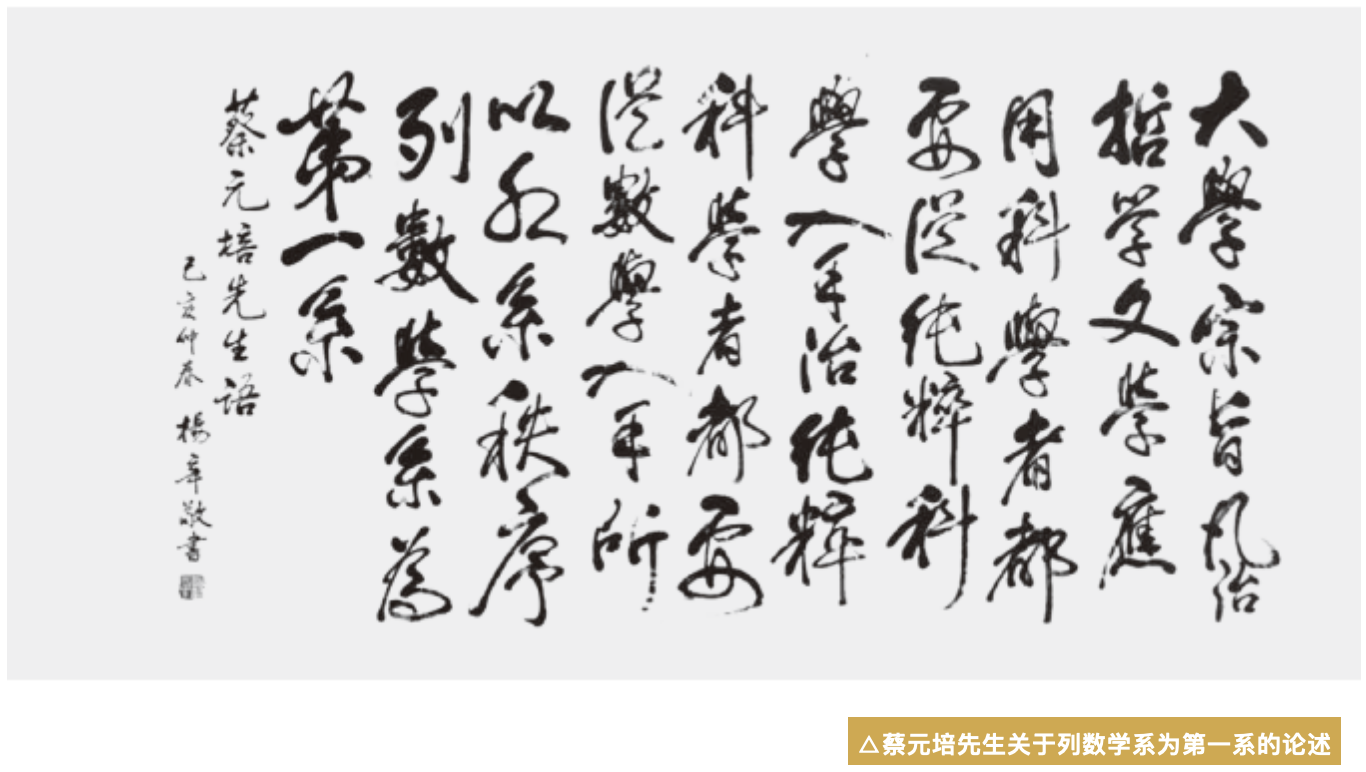 大學宗旨凡治
哲学文學應
用科學者都
要從純粹科
學入手治純粹
科學者都要
從數學入手所
以於系秩序
列數學系為
第一系
蔡元培先生語
己亥仲春 楊辛敬書
△蔡元培先生关于列数学系为第一系的论述